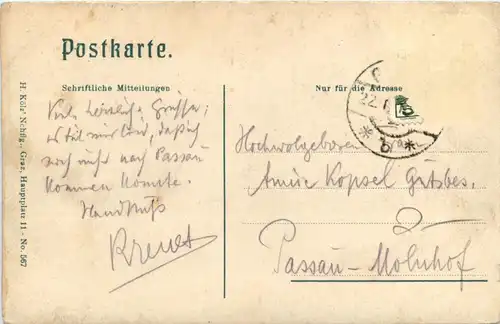 Postkarte.
Schriftliche Mitteilungen
Nur für die Adresse
H. Kölz Nchflg., Graz, Hauptplatz 11 - No. 567
Viele herzliche Grüsse;
es tät mir leid, daß ich
nicht mehr nach Passau
kommen konnte.
Handkuß
22.
Hochwohlgeboren
Kopsel Gutsbes.
Passau-